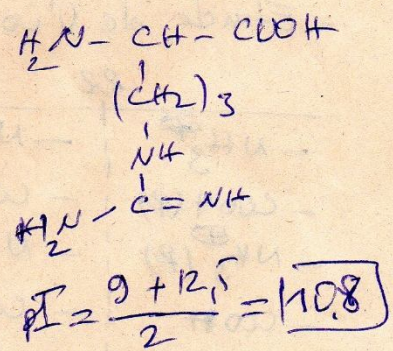 H₂N – CH – COOH
(CH₂)₃
NH
H₂N – C = NH
pI = 9 + 12,5 / 2 = 10,8